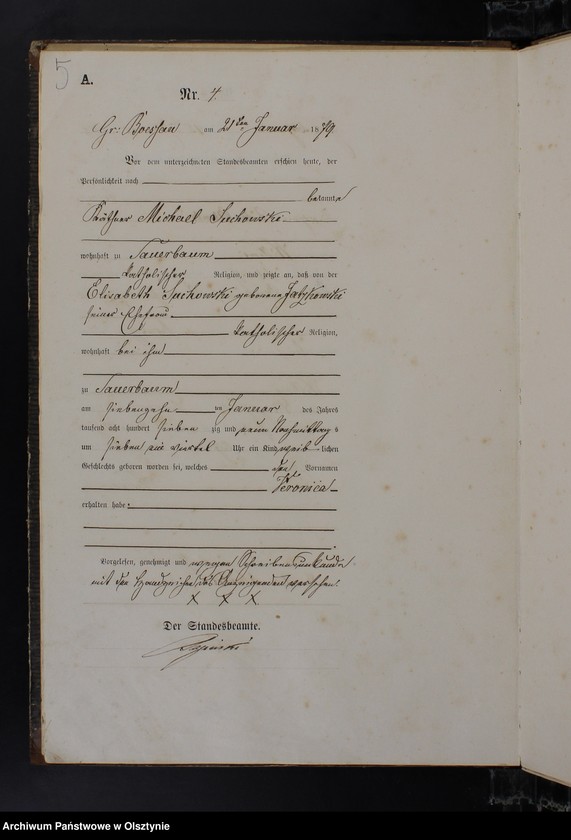 5
A.
Nr. 4.
Gr: Boessau am 21ten Januar 1879
Vor dem unterzeichneten Standesbeamten erschien heute, der
Persönlichkeit nach
bekannte
Käthner Michael Suchowski
wohnhaft zu Sauerbaum
katholischer Religion, und zeigte an, daß von der
Elisabeth Suchowski geborene Jatzkowski
seiner Ehefrau
katholischer Religion,
wohnhaft bei ihm
zu Sauerbaum
am siebenzehn ten Januar des Jahres
tausend acht hundert sieben zig und neun Nachmittags
um sieben ein viertel Uhr ein Kind weib lichen
Geschlechts geboren worden sei, welches den Vornamen
Veronica
erhalten habe.
Vorgelesen, genehmigt und wegen Schreibensunkunde
mit den Handzeichen des Anzeigenden versehen.
X X X
Der Standesbeamte.
Archiwum Państwowe w Olsztynie